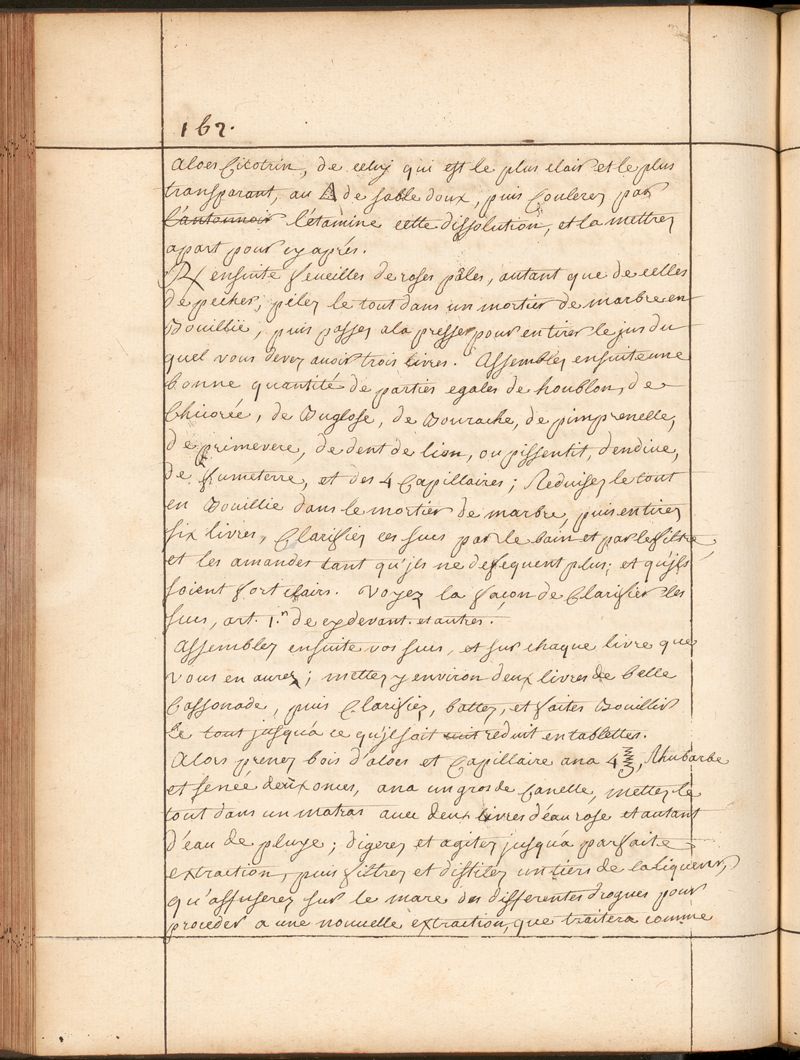 162.
aloes Citotrin, de celuy qui est le plus clair et le plus
transparant, au 🜂 de sable doux, puis Coulerez par
l'antonnoir l'étamine cette dissolution, et la mettrez
apart pour cy aprés.
℞ ensuite feueilles de roses pâles, autant que de celles
de pecher; pilez le tout dans un mortier de marbre en
Bouillie, puis passez a la presser pour en tirer le jus du
quel vous devez auoir trois livres. Assemblez ensuite une
bonne quantité de parties egales de houblon, de
Chicorée, de Buglose, de Bourache, de pimprenelle,
de primevere, de dent de lion, ou pissentit, d'endive,
de fumeterre, et des 4 Capillaires; Reduisez le tout
en Bouillie dans le mortier de marbre, puis en tirez
six livres, Clarifiez ces sucs par le bain et par le filtre,
et les amandes tant qu'jls ne defequent plus; et qu'jls
soient fort clairs. Voyez la façon de Clarifier les
sucs, art. 1.n de cy devant. et autres.
Assemblez ensuite vos sucs, et sur chaque livre que
vous en aurez; mettez y environ deux livres de belle
Cassonade, puis Clarifiez, battez, et faites Bouillir
le tout jusqu'a ce qu'jl soit suit reduit en tablettes.
Alors prenez bois d'aloes et Capillaire ana 4 ℥, Rhubarbe
et senée deux onces, ana un gros de Canelle, mettez le
tout dans un matras avec deux livres d'eau rose et autant
d'eau de pluye; digerez et agitez jusqu'a parfaite
extraction, puis filtrez et distilez un tiers de la liqueur,
qu'affuserez sur le marc des differentes drogues pour
proceder a une nouuelle extraction, que traitera comme